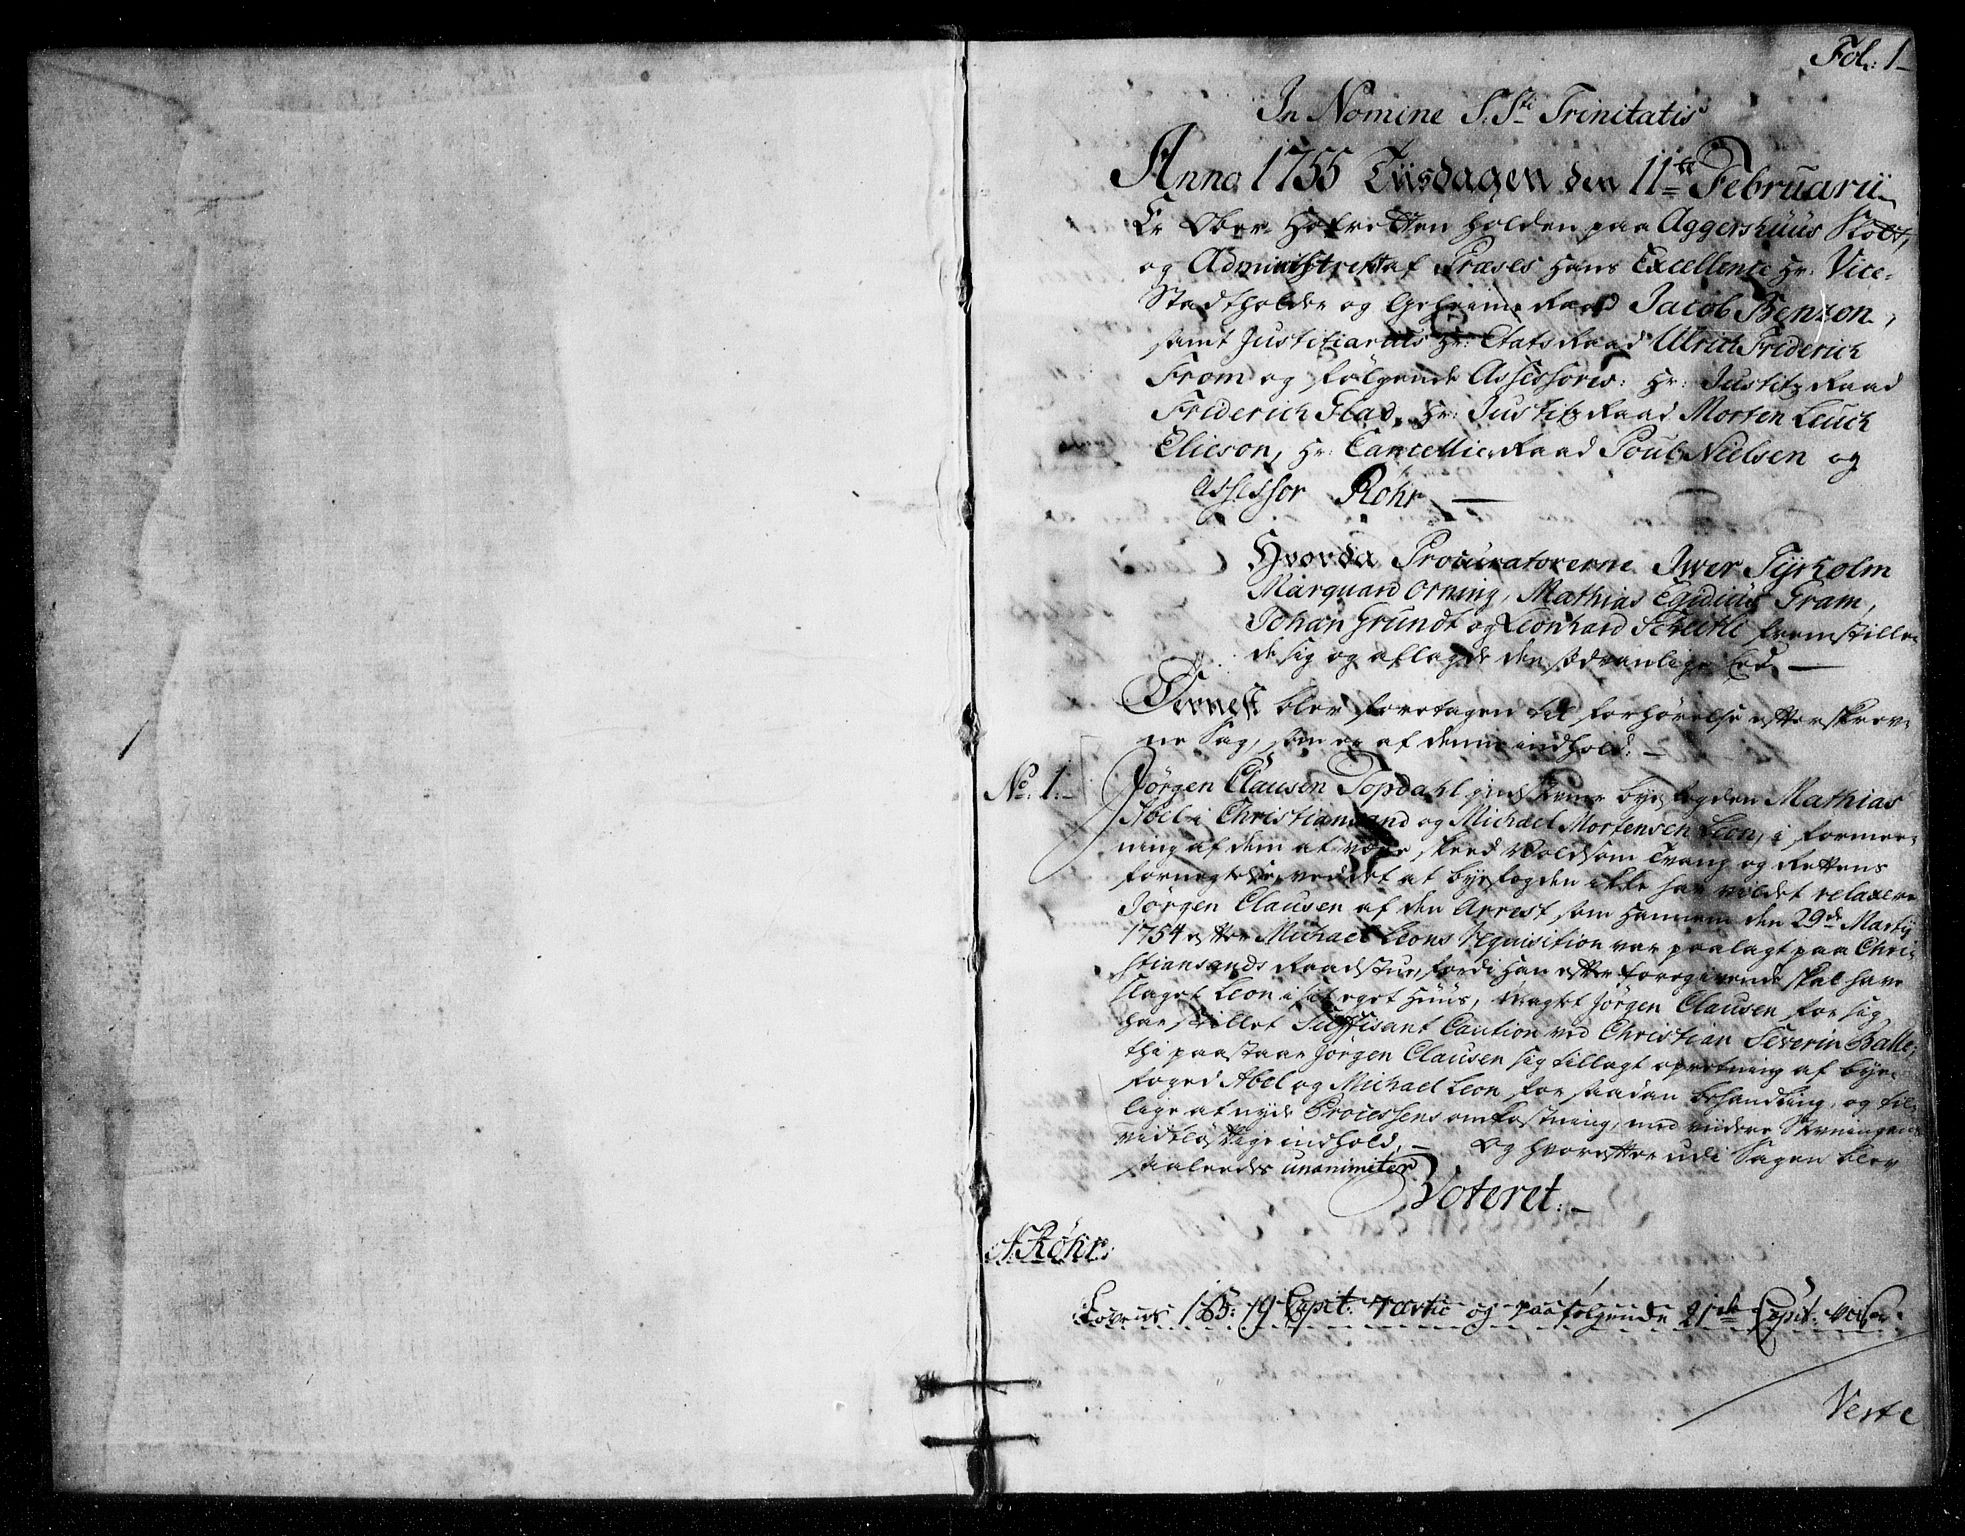 Fol: 1
In Nomine S. Sti Trinitatis
Anno 1755 Tiisdagen den 11te Februarii
Er Ober-Hofretten holden paa Aggershuus Slott,
og Administreret af Præses Hans Excellence Hr: Vice-
Stadtholder og Geheime Raad Jacob Benzon,
samt Justitiarius Hr: Etats Raad Ulrich Friderich
From og følgende Assessores: Hr: Justitz Raad
Friderich Glad, Hr: Justitz Raad Morten Leuch
Elieson, Hr: Cancellie Raad Poul Nielsen og
Assessor Röhr,
Hvorda Procuratorerne Iwer Tyrholm
Marquard Orning, Mathias Egidius Gram,
Johan Grundt og Leonhard Scheitle fremstille-
de sig og aflagde den sædvanlige Eed,
Dernest blev foretagen til forhørelse efterskrev-
ne Sag, som er af denne indhold:
No: 1.
Jørgen Clausen Topdahl indstevner byefogden Mathias
Abel i Christiansand og Michael Mortensen Leon, i formee-
ning af dem at være skeed Voldsom Tvang og Rettens
fornegtelse, ved det at byefogden ikke har villet relaxere
Jørgen Clausen af den Arrest som hannem den 29de Martij
1754 efter Michael Leons Requisition var paalagt paa Chri-
stiansands Raadstue, fordi han efter foregivende skal have
slaget Leon i sit eget Huus, uagtet Jørgen Clausen for sig
har stillet Suffisant Caution ved Christian Severin Balle,
thi paastaar Jørgen Clausen sig tillagt opretning af bye-
foged Abel og Michael Leon for saadan behandling, og til-
lige at nyde Processens omkostning, med videre Stevningens
vidtløftige indhold, Og hvorefter udi Sagen blev
saaledes unanimiter
Voteret:
A: Röhr:
Lovens 1 B: 19 Capit: 7 Artic og paafølgende 21de Capit: viiser
Verte